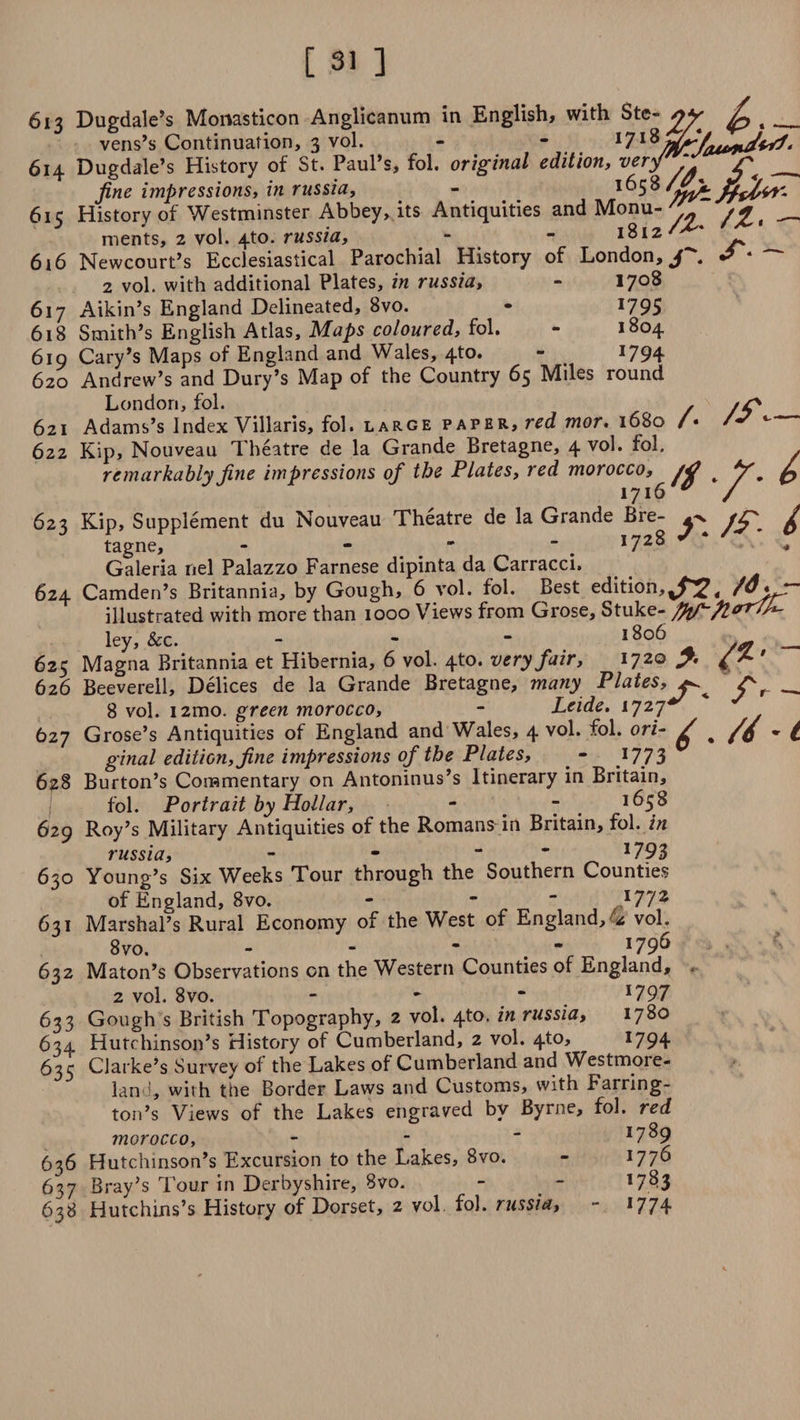 [ 31 ]
613 Dugdale's Monasticon Anglicanum in English, with Ste- 27 6. —
vens's Continuation, 3 vol. - - 1718
614 Dugdale's History of St. Paul's, fol. original edition, very
fine impressions, in russia, - 1658
615 History of Westminster Abbey, its Antiquities and Monu-
ments, 2 vol. 4to. russia, - - 1812 12. 12. —
616 Newcourt's Ecclesiastical Parochial History of London, 5. 5. —
2 vol. with additional Plates, in russia, - 1708
617 Aikin's England Delineated, 8vo. - 1795
618 Smith's English Atlas, Maps coloured, fol. - 1804
619 Cary's Maps of England and Wales, 4to. - 1794
620 Andrew's and Dury's Map of the Country 65 Miles round
London, fol.
621 Adams's Index Villaris, fol. LARGE PAPER, red mor. 1680 1. 15. —
622 Kip, Nouveau Théatre de la Grande Bretagne, 4 vol. fol.
remarkably fine impressions of the Plates, red morocco, 18. 7. 6
1716
623 Kip, Supplément du Nouveau Théatre de la Grande Bre- 5. 15. 6
tagne, - - - - 1728
Galeria nel Palazzo Farnese dipinta da Carracci.
624 Camden's Britannia, by Gough, 6 vol. fol. Best edition, 52. 10. —
illustrated with more than 1000 Views from Grose, Stuke-
ley, &c. - - - 1806
625 Magna Britannia et Hibernia, 6 vol. 4to. very fair, 1720 3. 12. —
626 Beeverell, Délices de la Grande Bretagne, many Plates, 5. 5. —
8 vol. 12mo. green morocco, - Leide. 1727
627 Grose's Antiquities of England and Wales, 4 vol. fol. ori- 6. 16 - 6
ginal edition, fine impressions of the Plates, - 1773
628 Burton's Commentary on Antoninus's Itinerary in Britain,
fol. Portrait by Hollar, - - 1658
629 Roy's Military Antiquities of the Romans in Britain, fol. in
russia, - - - - 1793
630 Young's Six Weeks Tour through the Southern Counties
of England, 8vo. - - - 1772
631 Marshal's Rural Economy of the West of England, 2 vol.
8vo. - - - - 1796
632 Maton's Observations on the Western Counties of England,
2 vol. 8vo. - - - 1797
633 Gough's British Topography, 2 vol. 4to. in russia, 1780
634 Hutchinson's History of Cumberland, 2 vol. 4to, 1794
635 Clarke's Survey of the Lakes of Cumberland and Westmore-
land, with the Border Laws and Customs, with Farring-
ton's Views of the Lakes engraved by Byrne, fol. red
morocco, - - - 1789
636 Hutchinson's Excursion to the Lakes, 8vo. - 1776
637 Bray's Tour in Derbyshire, 8vo. - - 1783
638 Hutchins's History of Dorset, 2 vol. fol. russia, - 1774